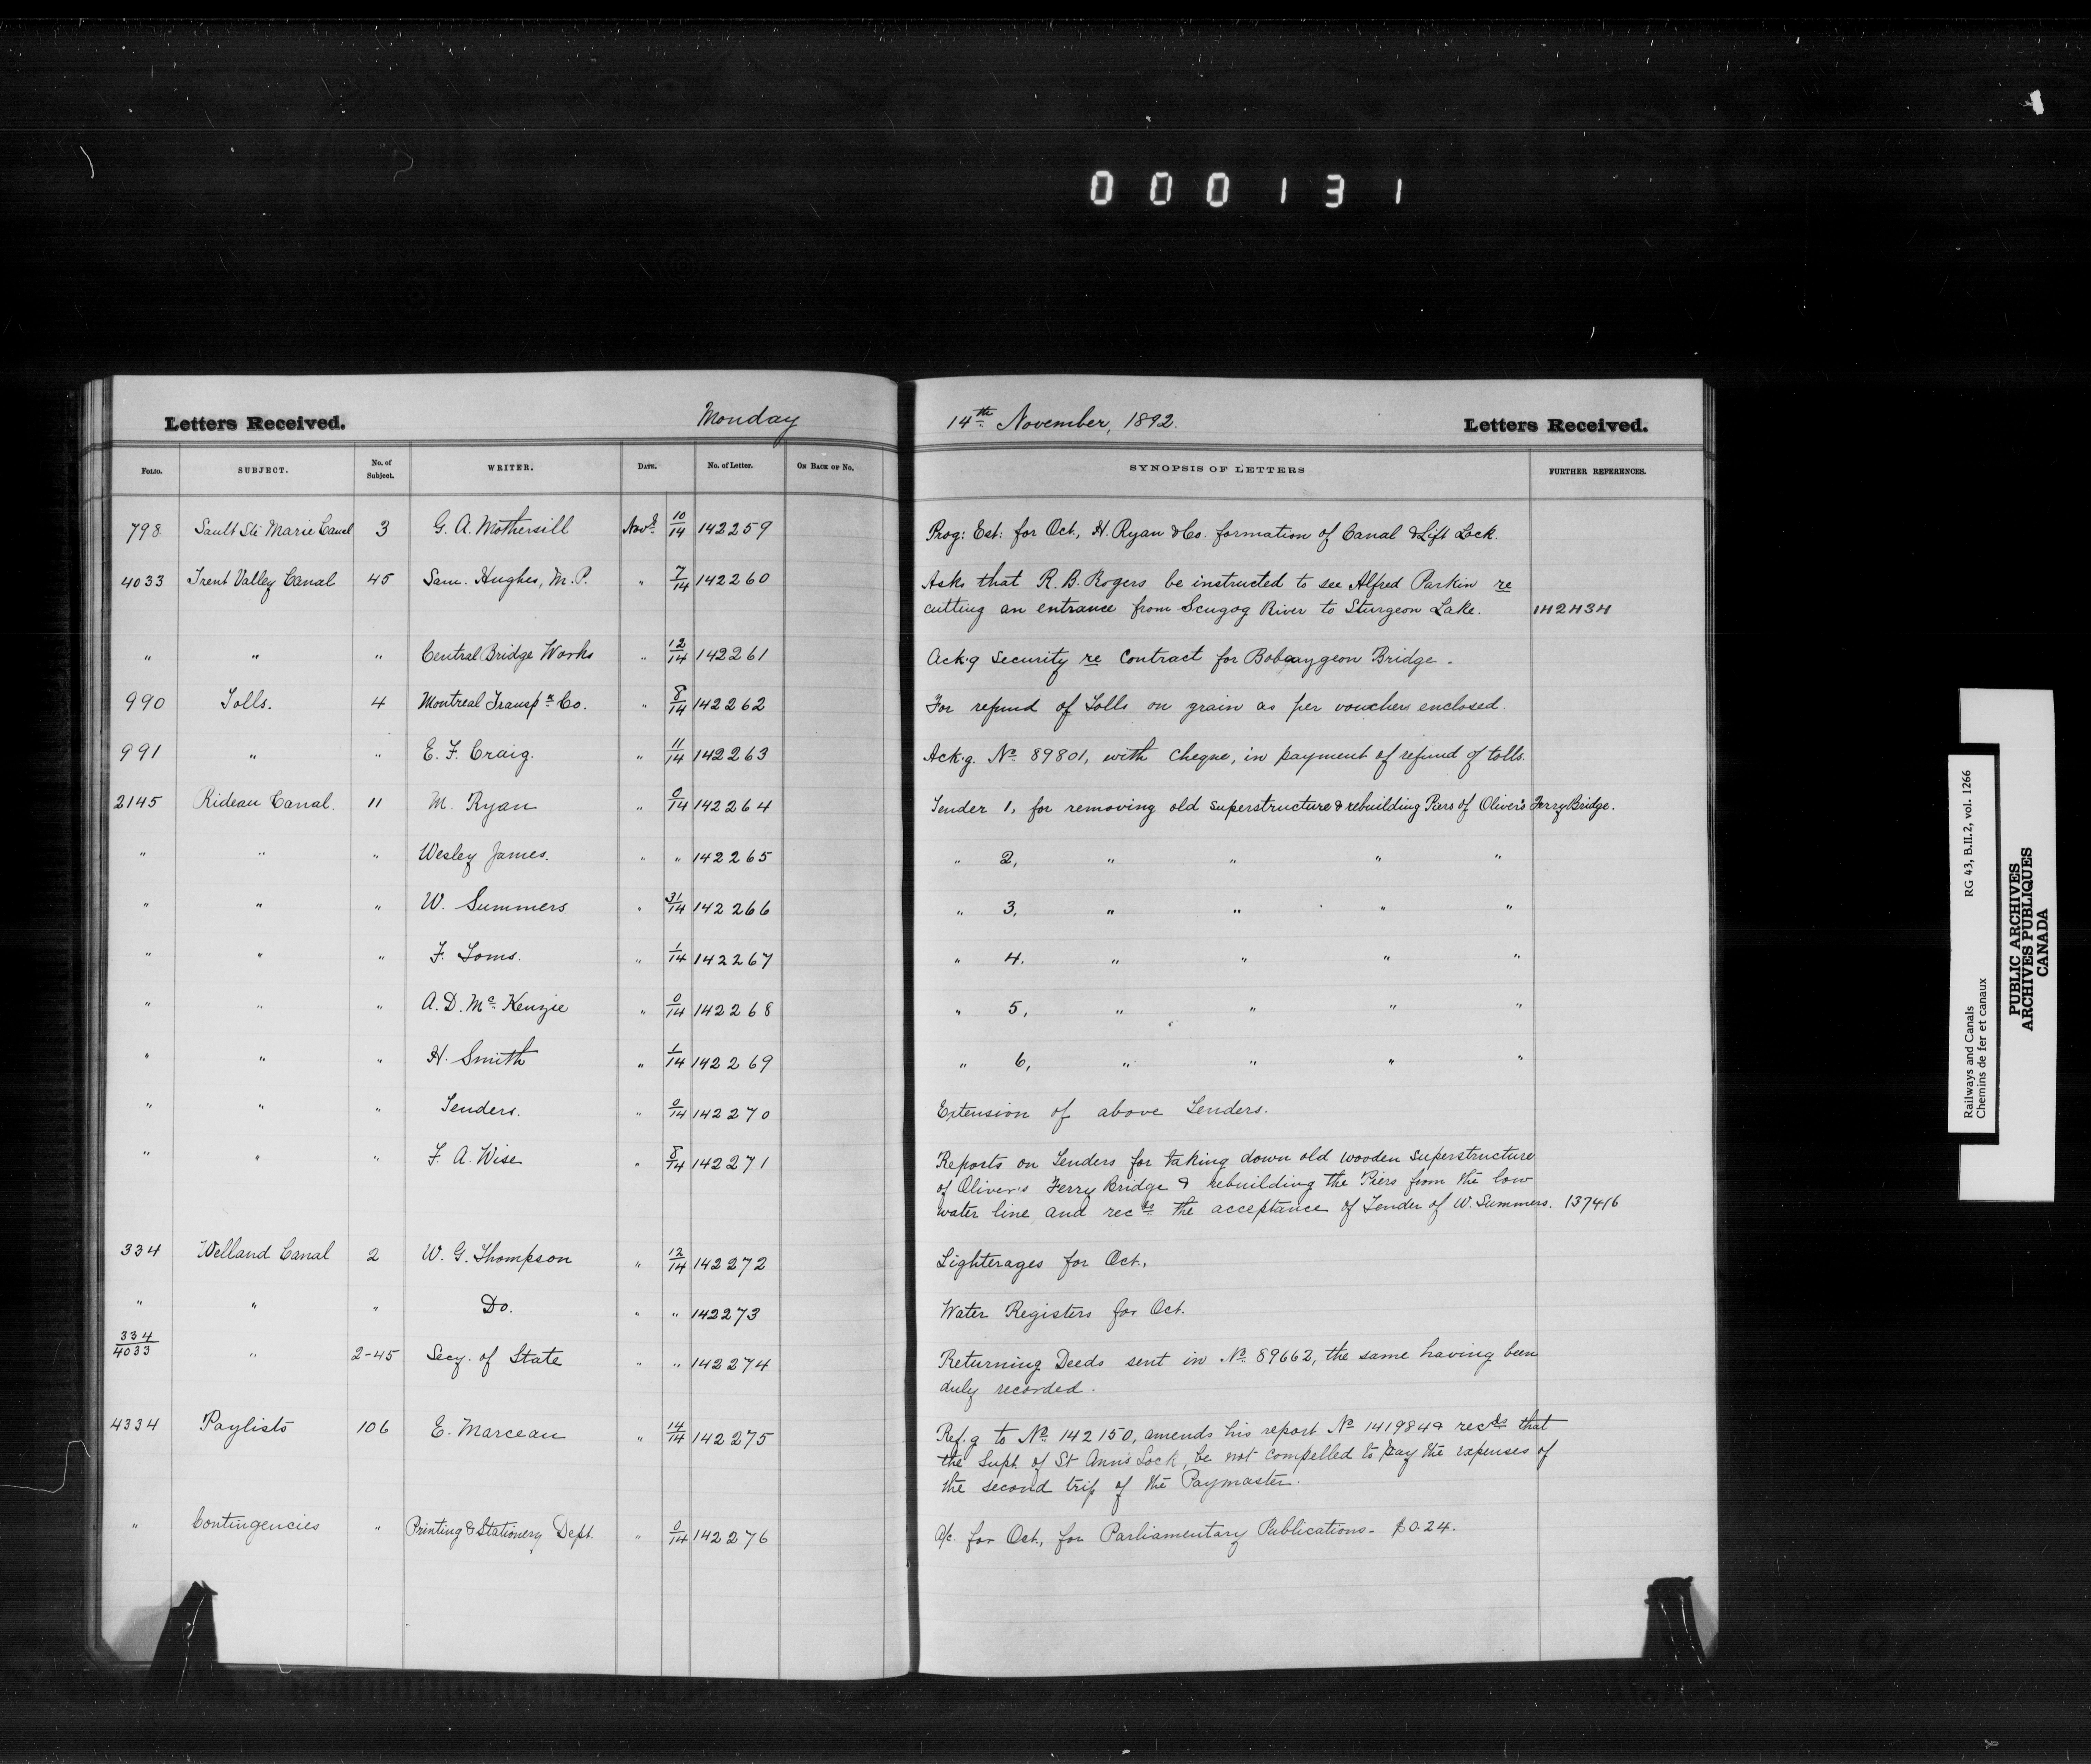 000131
Letters Received. Monday 14th November, 1892. Letters Received.
FOLIO. SUBJECT. No. of Subject. WRITER. DATE. No. of Letter. ON BACK OF NO. SYNOPSIS OF LETTERS FURTHER REFERENCES.
798 Sault Ste Marie Canal 3 G. A. Mothersill Novr 10/14 142259 Prog: Est: for Oct., H. Ryan & Co. formation of Canal & Lift Lock.
4033 Trent Valley Canal 45 Sam. Hughes, M.P. " 7/14 142260 Asks that R. B. Rogers be instructed to see Alfred Parkin re
cutting an entrance from Scugog River to Sturgeon Lake. 142434
" " " Central Bridge Works " 12/14 142261 Ack.g Security re Contract for Bobcaygeon Bridge.
990 Tolls. 4 Montreal Transpn Co. " 8/14 142262 For refund of Tolls on grain as per vouchers enclosed.
991 " " E. F. Craig. " 11/14 142263 Ack.g. No. 89801, with Cheque, in payment of refund of tolls.
2145 Rideau Canal. 11 M. Ryan " 0/14 142264 Tender 1, for removing old superstructure & rebuilding Piers of Oliver's Ferry Bridge.
" " " Wesley James. " " 142265 " 2, " " " "
" " " W. Summers " 31/14 142266 " 3, " " " "
" " " F. Toms. " 1/14 142267 " 4. " " " "
" " " A. D. Mc. Kenzie " 0/14 142268 " 5, " " " "
" " " H. Smith " 1/14 142269 " 6, " " " "
" " " Tenders. " 0/14 142270 Extension of above Tenders.
" " " F. A. Wise " 8/14 142271 Reports on Tenders for taking down old wooden superstructure
of Oliver's Ferry Bridge & rebuilding the Piers from the low
water line and recds the acceptance of Tender of W. Summers. 137416
334 Welland Canal 2 W. G. Thompson " 12/14 142272 Lighterages for Oct.
" " " Do. " " 142273 Water Registers for Oct.
334/4033 " 2-45 Secy. of State " " 142274 Returning Deeds sent in No. 89662, the same having been
duly recorded.
4334 Paylists 106 E. Marceau " 14/14 142275 Ref.g to No. 142150, amends his report No 141984 & recds that
the Supt. of St Ann's Lock, be not compelled to pay the expenses of
the second trip of the Paymaster.
" Contingencies " Printing & Stationery Dept. " 0/14 142276 a/c. for Oct., for Parliamentary Publications - $0.24.
Railways and Canals RG 43, B.II.2, vol. 1266
Chemins de fer et canaux
PUBLIC ARCHIVES
ARCHIVES PUBLIQUES
CANADA